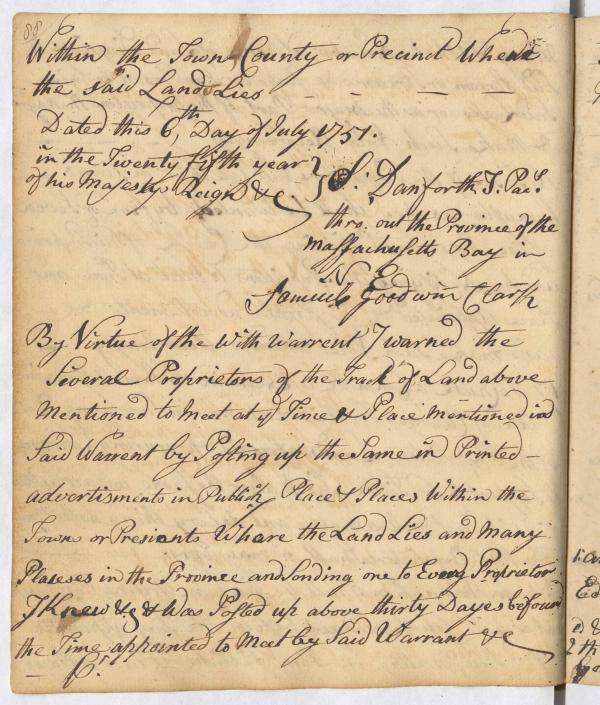 88
Within the Town County or Precinct Where
the said Land Lies
Dated this 6th Day of July 1751.
in the Twenty fifth year
of his Majestys Reign &c
S: Danforth J. Pac.
thro. out the Province of the
Massachusetts Bay in
N E
Samuel Goodwin Clark
By Virtue of the With Warrent J warned the
Several Proprietors of the Track of Land above
Mentioned to Meet at ye Time & Place mentioned in
Said Warrent by Posting up the Same in Printed
advertisments in Publick Place & Places Within the
Towns or Presients Whare the Land Lies and Many
Plaeses in the Province and Sending one to Every Proprietor
J Knew &c & Was Posted up above thirty Dayes befour
the Time appointed to Meet by Said Warrant &c